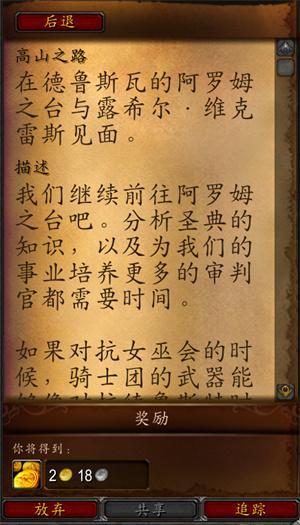 后退
高山之路
在德鲁斯瓦的阿罗姆
之台与露希尔·维克
雷斯见面。
描述
我们继续前往阿罗姆
之台吧。分析圣典的
知识，以及为我们的
事业培养更多的审判
官都需要时间。
如果对抗女巫会的时
候，骑士团的武器能
奖励
你将得到：
2 18
放弃
共享
追踪